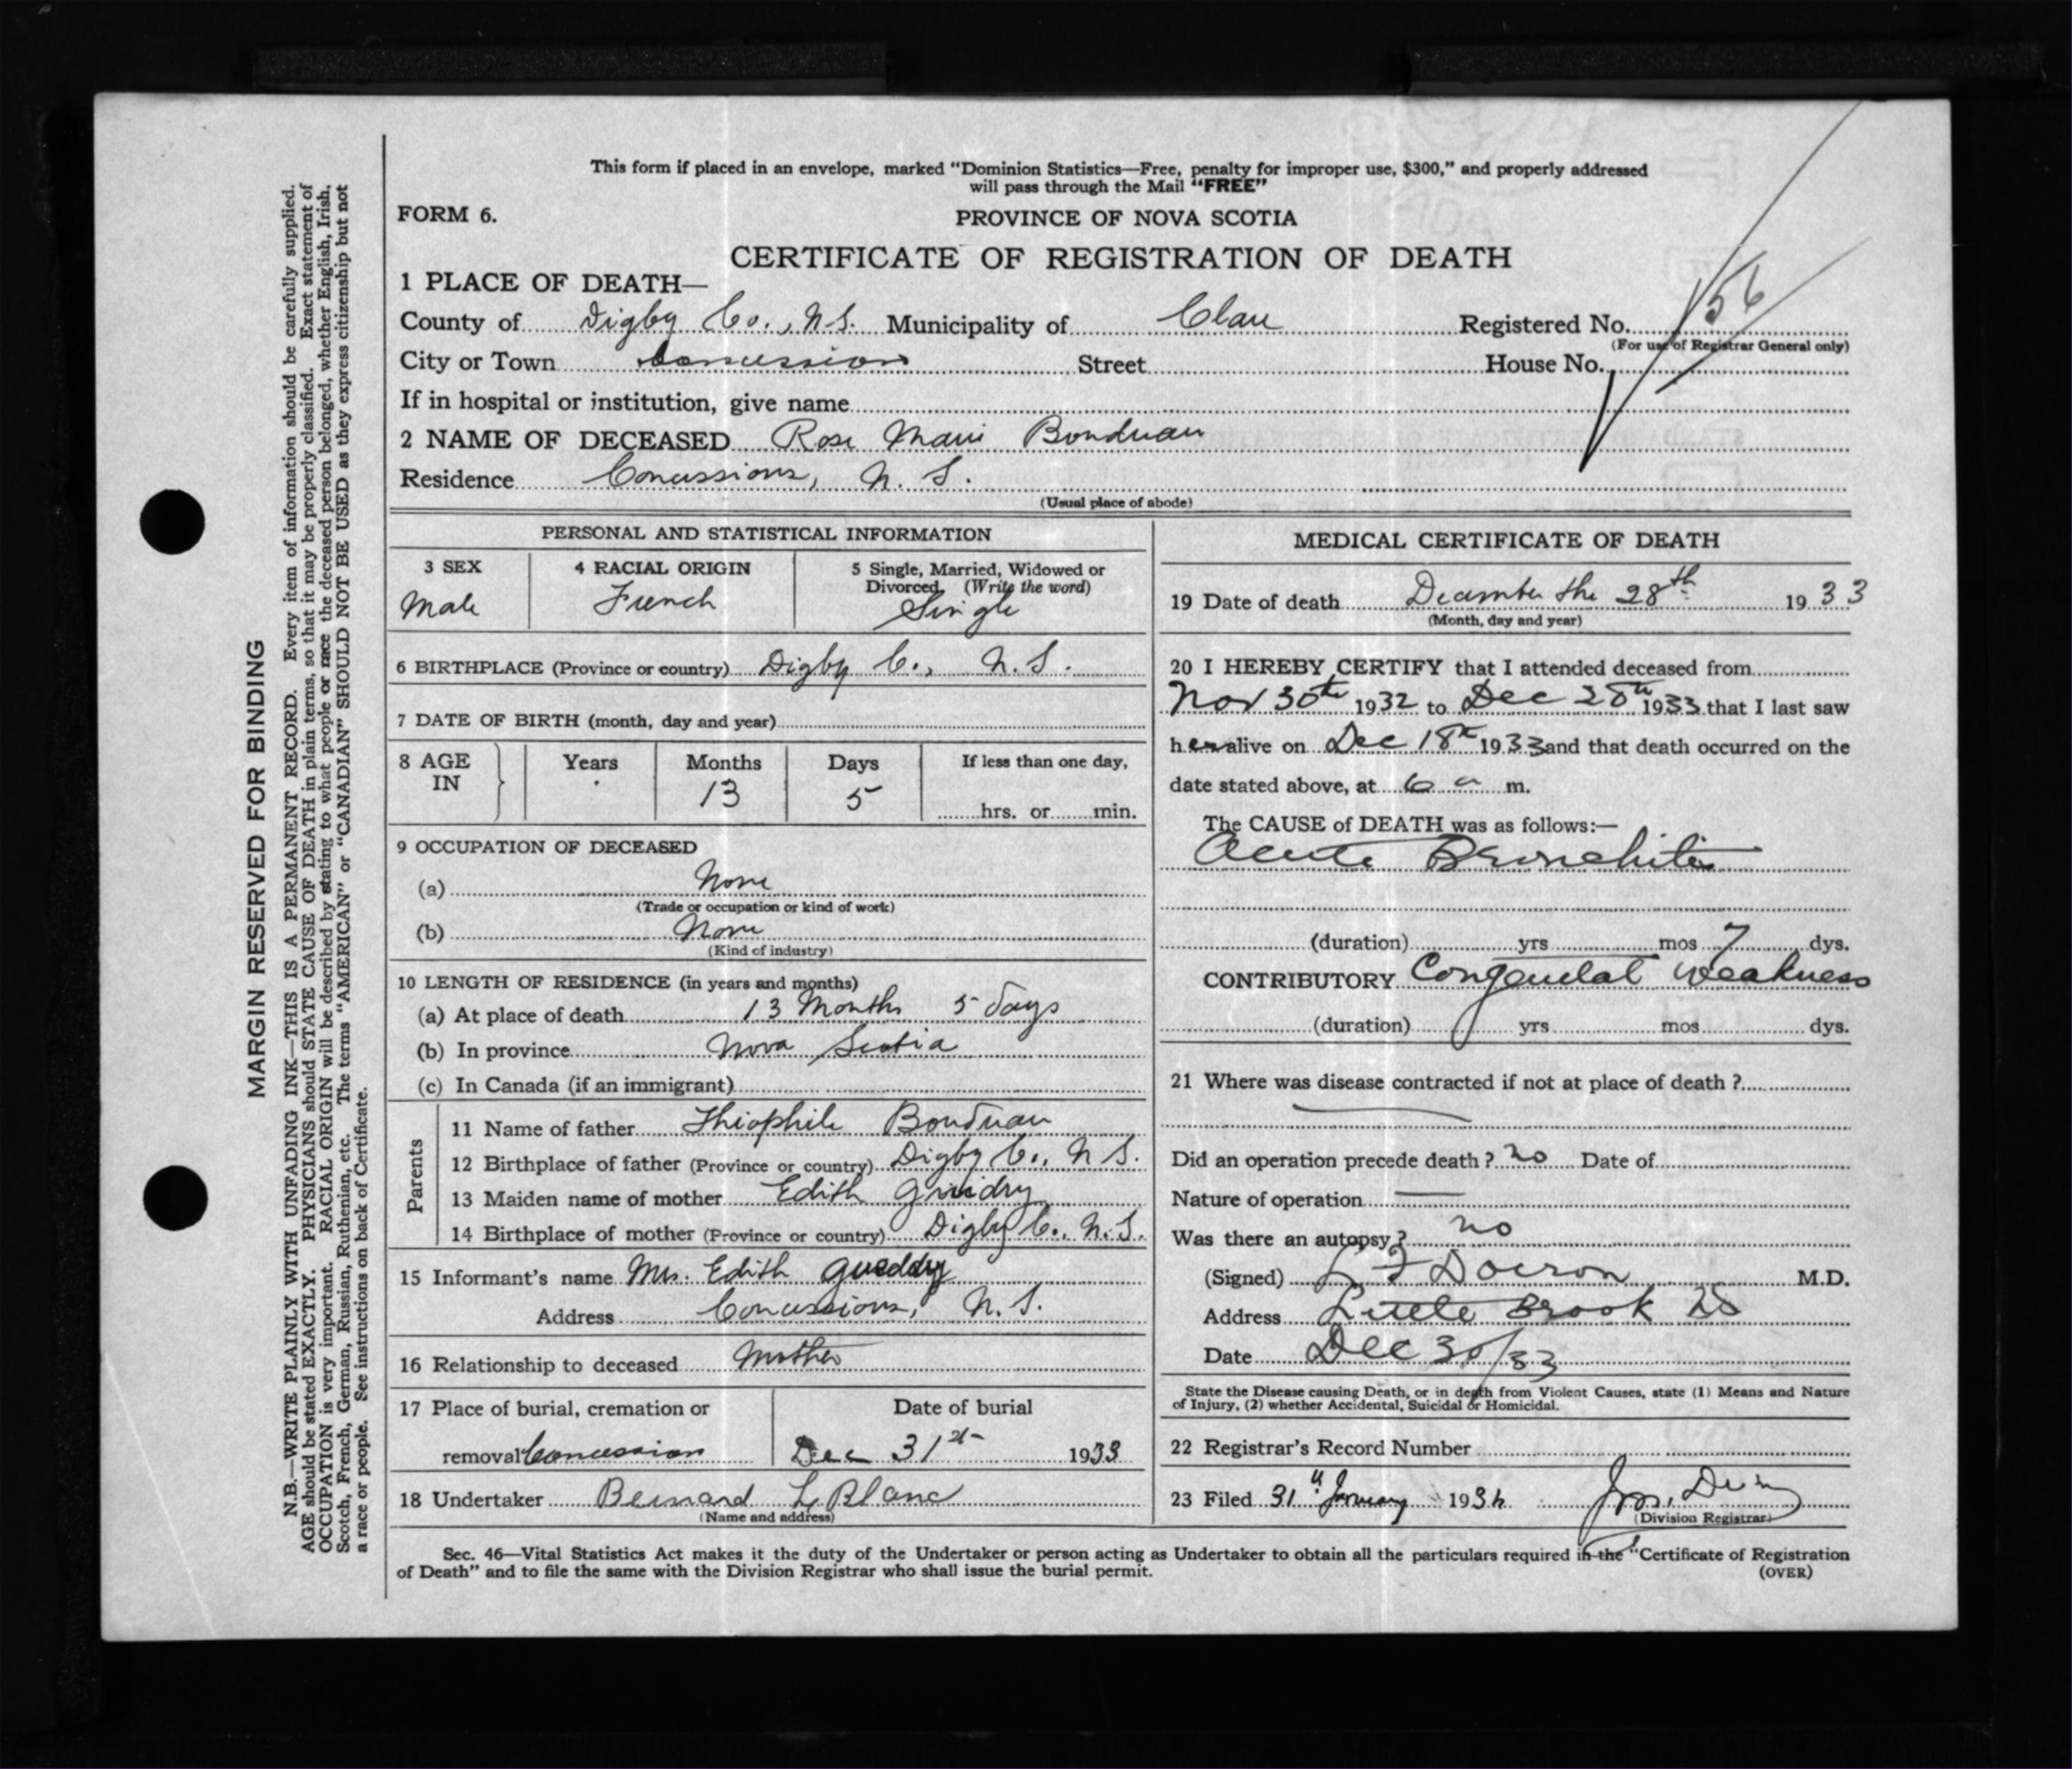 This form if placed in an envelope, marked “Dominion Statistics—Free, penalty for improper use, $300,” and properly addressed
will pass through the Mail “FREE”
FORM 6.
PROVINCE OF NOVA SCOTIA
CERTIFICATE OF REGISTRATION OF DEATH
1 PLACE OF DEATH—
County of Digby Co., N.S. Municipality of Clare Registered No. 156
(For use of Registrar General only)
City or Town Concession Street House No.
If in hospital or institution, give name
2 NAME OF DECEASED Rose Marie
Residence Concessions, N. S.
(Usual place of abode)
PERSONAL AND STATISTICAL INFORMATION
3 SEX 4 RACIAL ORIGIN 5 Single, Married, Widowed or
Divorced (Write the word)
Male French Single
6 BIRTHPLACE (Province or country) Digby Co., N. S.
7 DATE OF BIRTH (month, day and year)
8 AGE IN Years Months Days If less than one day,
13 5 hrs. or min.
9 OCCUPATION OF DECEASED
(a) None
(Trade or occupation or kind of work)
(b) None
(Kind of industry)
10 LENGTH OF RESIDENCE (in years and months)
(a) At place of death 13 Months 5 days
(b) In province Nova Scotia
(c) In Canada (if an immigrant)
Parents
11 Name of father Thiophile
12 Birthplace of father (Province or country) Digby Co., N S.
13 Maiden name of mother Edith
14 Birthplace of mother (Province or country) Digby Co., N. S.
15 Informant's name Mrs. Edith Gueddry
Address Concessions, N. S.
16 Relationship to deceased Mother
17 Place of burial, cremation or Date of burial
removal Concession Dec 31st 1933
18 Undertaker Bernard LeBlanc
(Name and address)
MEDICAL CERTIFICATE OF DEATH
19 Date of death December the 28th 1933
(Month, day and year)
20 I HEREBY CERTIFY that I attended deceased from
Nov 30th 1932 to Dec 28th 1933 that I last saw
her alive on Dec 18th 1933 and that death occurred on the
date stated above, at 6 a m.
The CAUSE of DEATH was as follows:—
Acute Bronchitis
(duration) yrs mos 7 dys.
CONTRIBUTORY Congenital weakness
(duration) yrs mos dys.
21 Where was disease contracted if not at place of death ?
Did an operation precede death ? no Date of
Nature of operation
Was there an autopsy? no
(Signed) L F Doiron M.D.
Address Little Brook NS
Date Dec 30/33
State the Disease causing Death, or in death from Violent Causes, state (1) Means and Nature
of Injury, (2) whether Accidental, Suicidal or Homicidal.
22 Registrar's Record Number
23 Filed 31st January 1934
(Division Registrar)
Sec. 46—Vital Statistics Act makes it the duty of the Undertaker or person acting as Undertaker to obtain all the particulars required in the “Certificate of Registration
of Death” and to file the same with the Division Registrar who shall issue the burial permit.
(OVER)
MARGIN RESERVED FOR BINDING
N.B.—WRITE PLAINLY WITH UNFADING INK—THIS IS A PERMANENT RECORD. Every item of information should be carefully supplied.
AGE should be stated EXACTLY. PHYSICIANS should STATE CAUSE OF DEATH in plain terms, so that it may be properly classified. Exact statement of
OCCUPATION is very important. RACIAL ORIGIN will be described by stating to what people or race the deceased person belonged, whether English, Irish,
Scotch, French, German, Russian, Ruthenian, etc. The terms “AMERICAN” or “CANADIAN” SHOULD NOT BE USED as they express citizenship but not
a race or people. See instructions on back of Certificate.